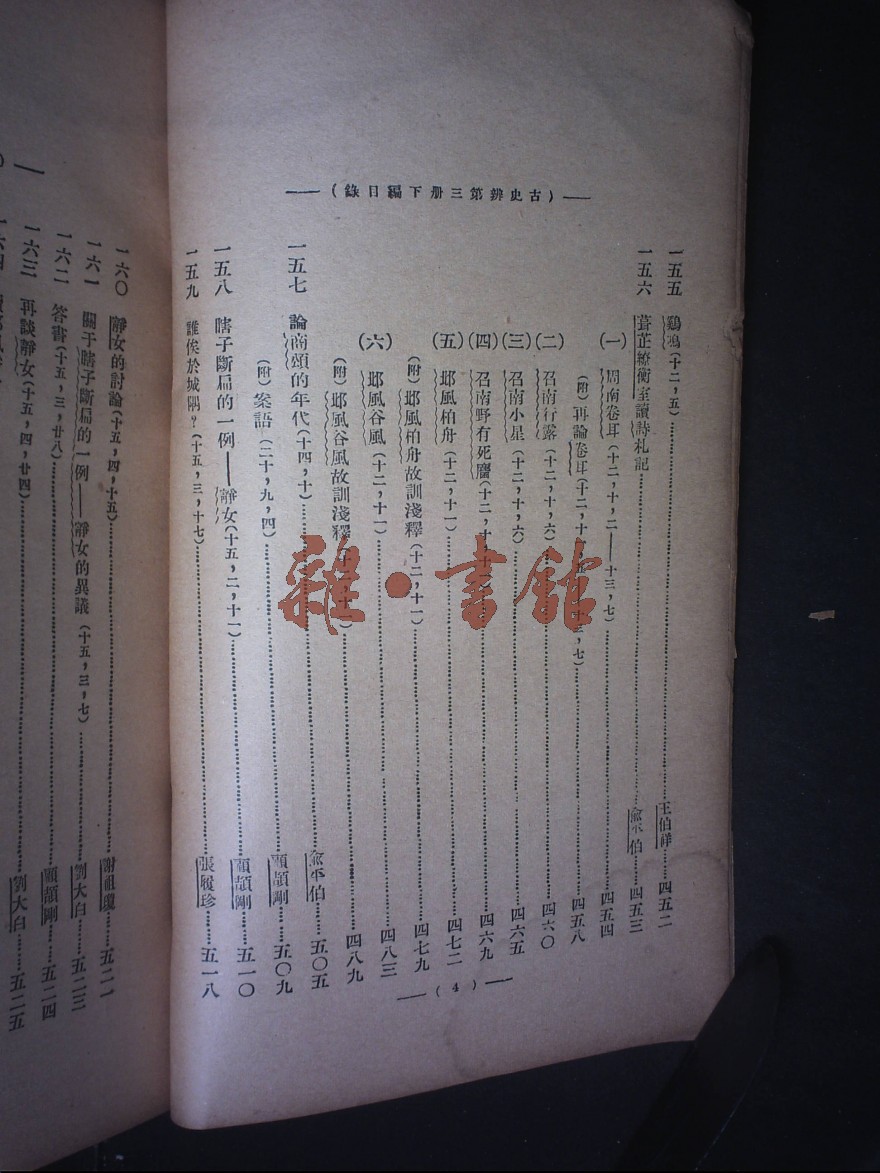 ——(古史辨第三册下編目錄)——
一五五 鷄鳴(十二,五)……王伯祥……四五二
一五六 葺芷繚衡室讀詩札記……兪平伯……四五三
(一)周南卷耳(十二,十,二——十三,七)……四五四
(附)再論卷耳(十二,十……十三,七)……四五八
(二)召南行露(十二,十,六)……四六〇
(三)召南小星(十二,十,六)……四六五
(四)召南野有死麕(十二,十,十一)……四六九
(五)邶風柏舟(十二,十一)……四七二
(附)邶風柏舟故訓淺釋(十二,十一)……四七九
(六)邶風谷風(十二,十一)……四八三
(附)邶風谷風故訓淺釋……四八九
一五七 論商頌的年代(十四,十)……兪平伯……五〇五
(附)案語(二十,九,四)……顧頡剛……五〇九
一五八 瞎子斷扁的一例——靜女(十五,二,十一)……顧頡剛……五一〇
一五九 誰俟於城隅?(十五,三,十七)……張履珍……五一八
——(4)——
一六〇 靜女的討論(十五,四,十五)……謝祖瓊……五二一
一六一 關于瞎子斷扁的一例——靜女的異議(十五,三,七)……劉大白……五二三
一六二 答書(十五,三,廿八)……顧頡剛……五二四
一六三 再談靜女(十五,四,廿四)……劉大白……五二五
一六四
雜·書館